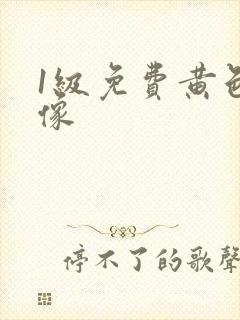 1級免費黄色
像
停不了的歌聲